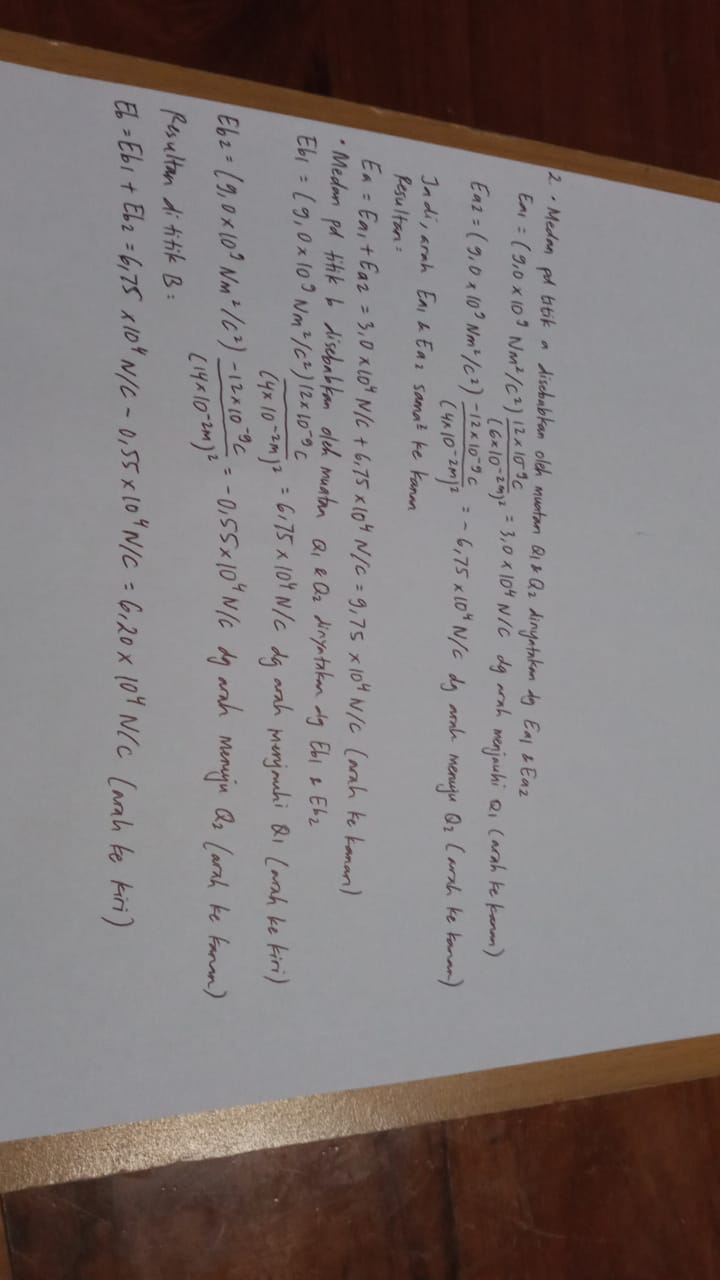 2. • Medan pd titik a disebabkan oleh muatan Q1 & Q2 dinyatakan dg Ea1 & Ea2
Ea1 = (9,0 x 10⁹ Nm²/C²) 12 x 10⁻⁹C / (6x10⁻²m)² = 3,0 x 10⁴ N/C dg arah menjauhi Q1 (arah ke kanan)
Ea2 = (9,0 x 10⁹ Nm²/C²) -12 x 10⁻⁹C / (4x10⁻²m)² = -6,75 x 10⁴ N/C dg arah menuju Q2 (arah ke kanan)
Jadi, arah Ea1 & Ea2 sama² ke kanan
Resultan:
Ea = Ea1 + Ea2 = 3,0 x 10⁴ N/C + 6,75 x 10⁴ N/C = 9,75 x 10⁴ N/C (arah ke kanan)
• Medan pd titik b disebabkan oleh muatan Q1 & Q2 dinyatakan dg Eb1 & Eb2
Eb1 = (9,0 x 10⁹ Nm²/C²) 12x10⁻⁹C / (4x10⁻²m)² = 6,75 x 10⁴ N/C dg arah menjauhi Q1 (arah ke kiri)
Eb2 = (9,0x10⁹ Nm²/C²) -12x10⁻⁹C / (14x10⁻²m)² = -0,55x10⁴ N/C dg arah menuju Q2 (arah ke kanan)
Resultan di titik B:
Eb = Eb1 + Eb2 = 6,75 x10⁴ N/C - 0,55x10⁴ N/C = 6,20 x 10⁴ N/C (arah ke kiri)